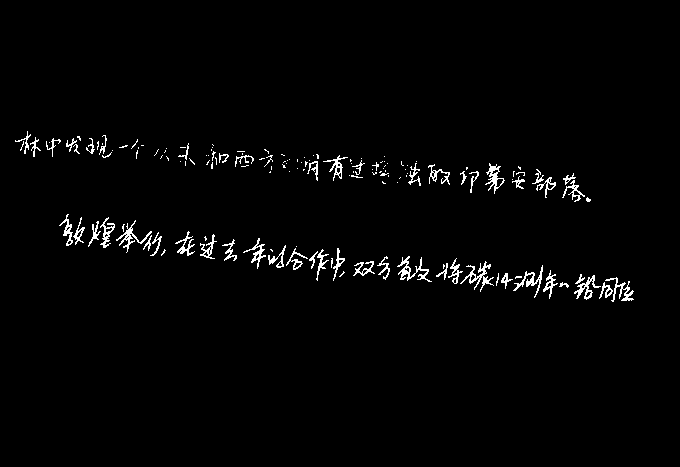 林中发现一个从未和西方文明有过接触的印第安部落。
敦煌举行,在过去一年的合作中,双方首次将碳14测年、铅同位